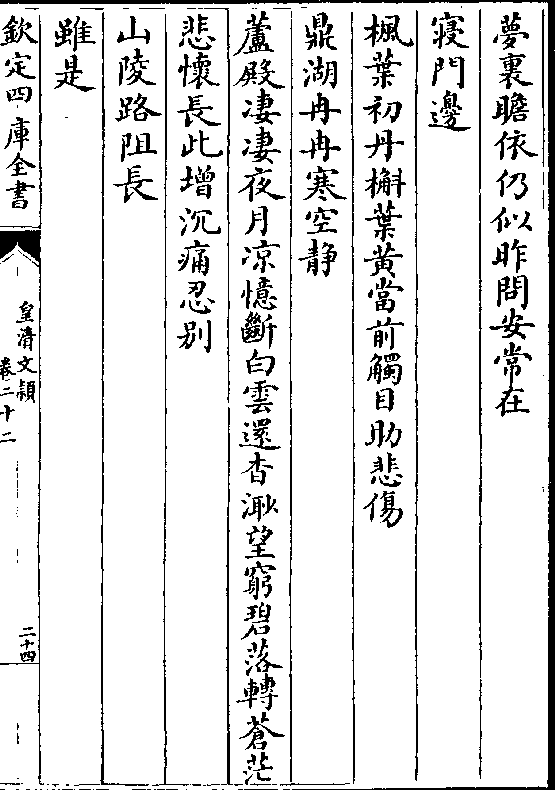 夢裏瞻依仍似昨問安常在
寢門邊
楓葉初丹槲葉黃當前觸目助悲傷
鼎湖冉冉寒空静
蘆殿淒淒夜月凉憶斷白雲還杳渺望窮碧落轉蒼茫
悲懷長此增沉痛忍别
山陵路阻長
雖是
欽定四庫全書
皇清文穎
卷二十二
二十四